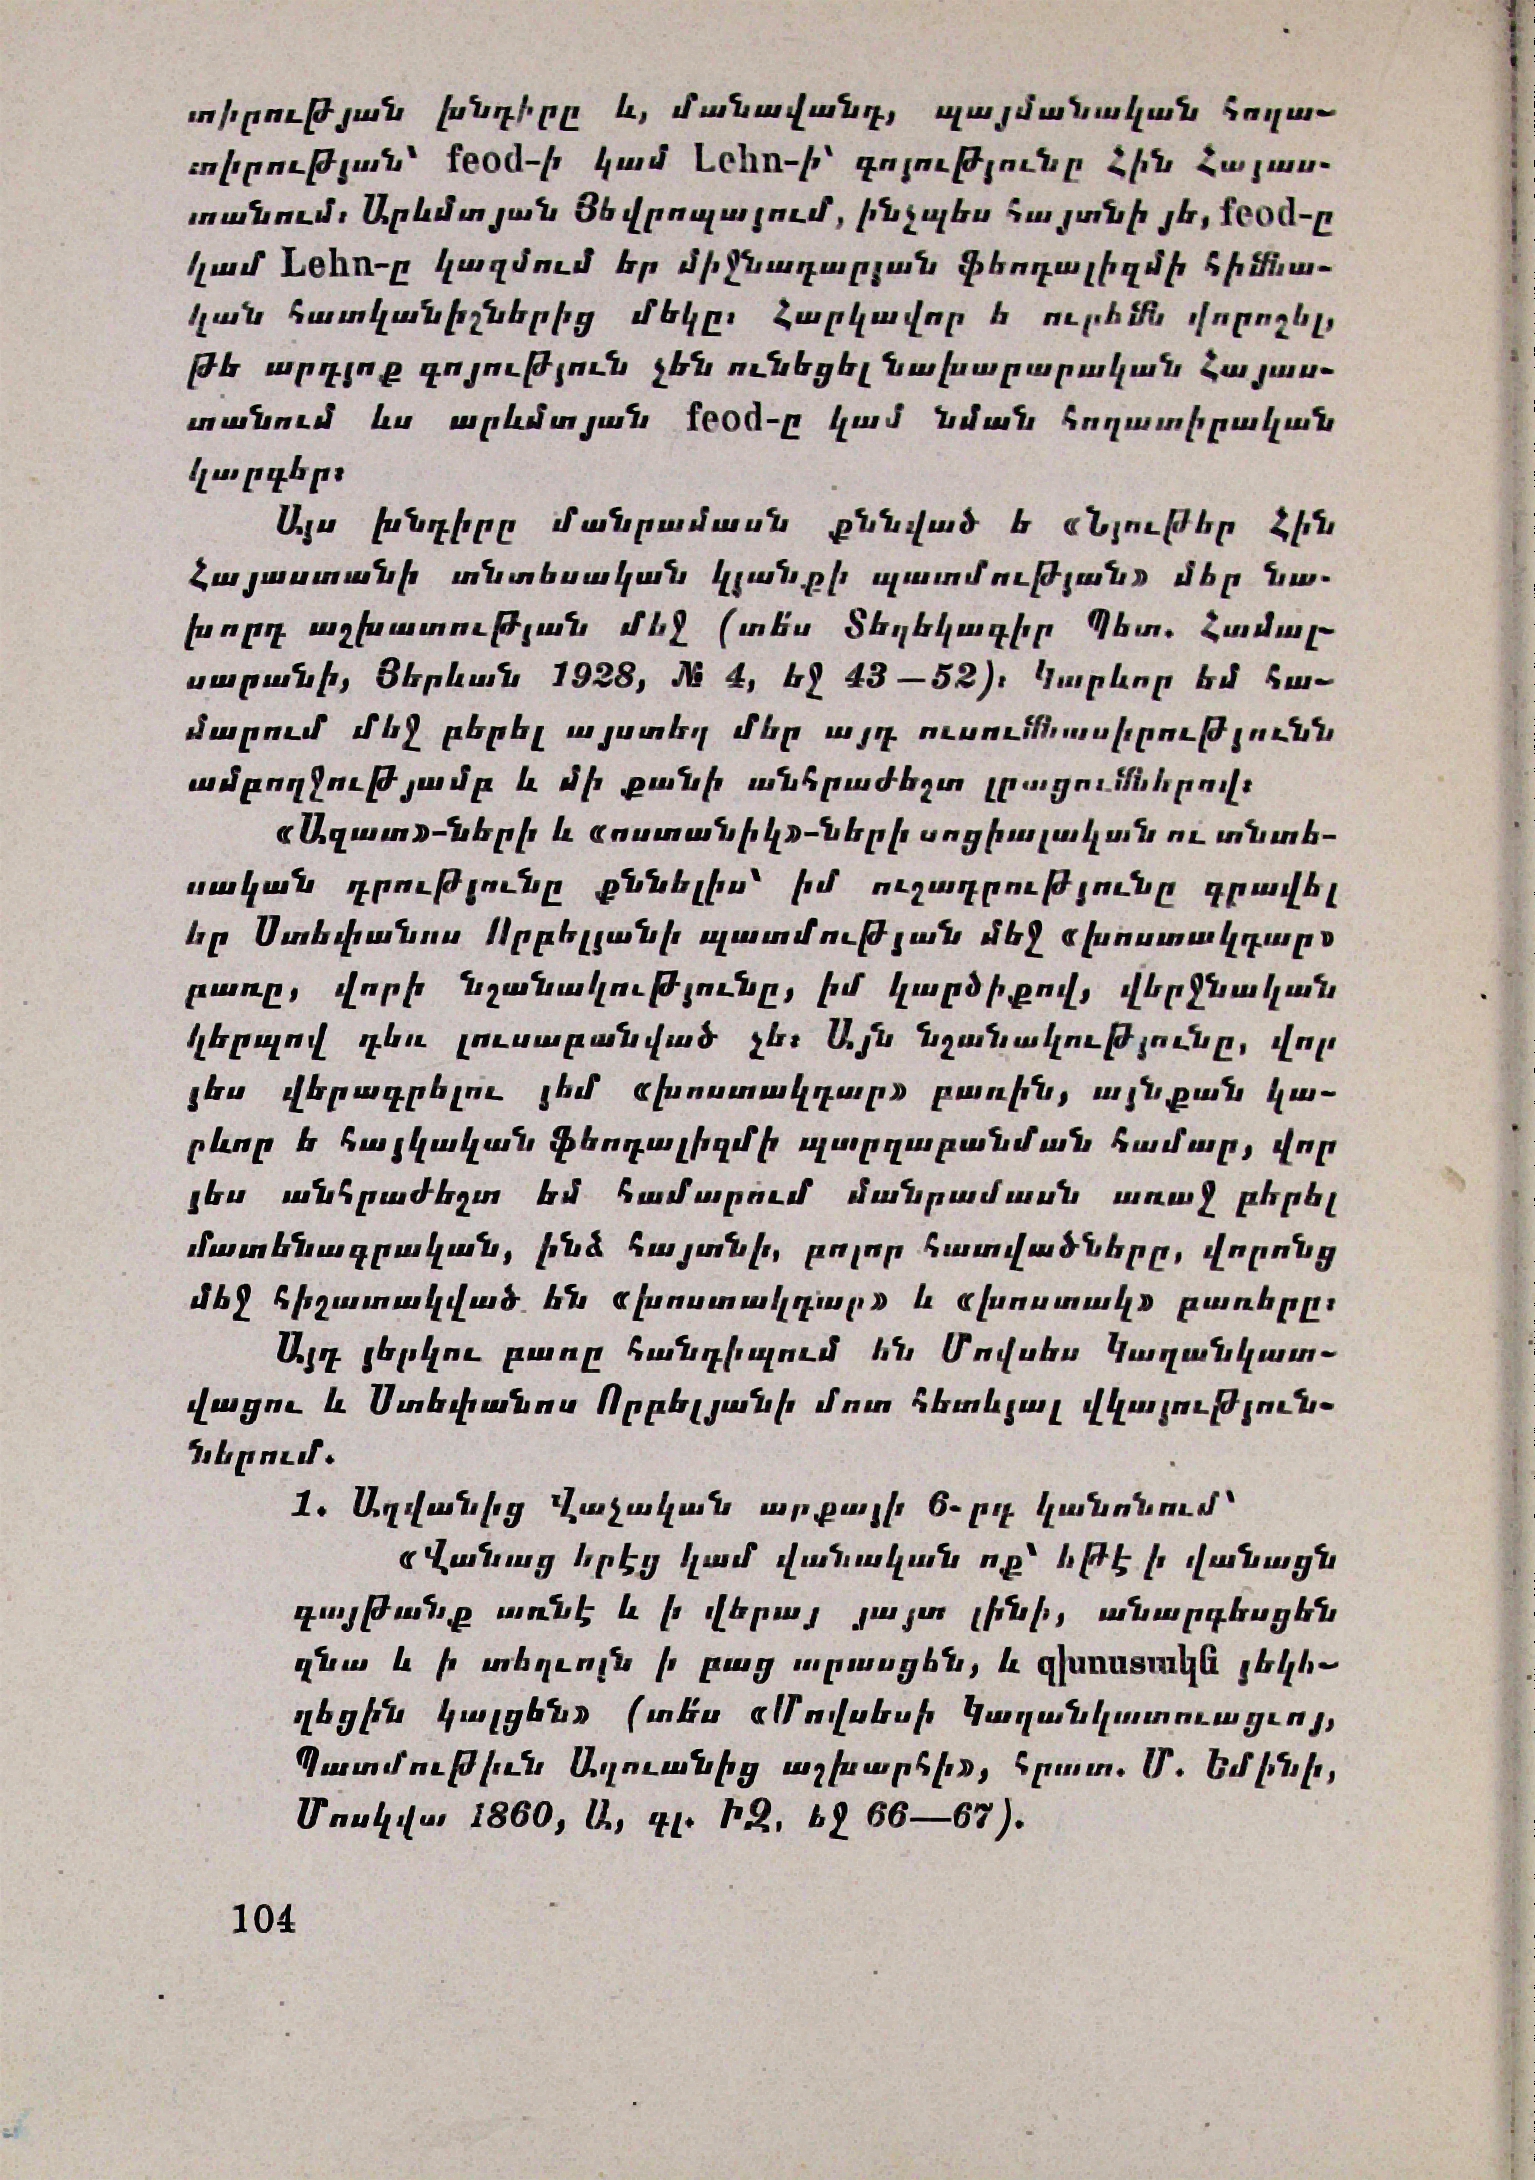 տիրության խնդիրը և, մանավանդ, պայմանական հողա-
տիրության՝ feod-ի կամ Lehn-ի՝ գոյությունը Հին Հայաս-
տանում։ Արևմտյան Յեվրոպայում, ինչպես հայտնի յե, feod-ը
կամ Lehn-ը կազմում եր միջնադարյան ֆեոդալիզմի հիմնա-
կան հատկանիշներից մեկը։ Հարկավոր ե ուրեմն վորոշել,
թե արդյոք գոյություն չեն ունեցել նախարարական Հայաս-
տանում ևս արևմտյան feod-ը կամ նման հողատիրական
կարգեր։
Այս խնդիրը մանրամասն քննված ե «Նյութեր Հին
Հայաստանի տնտեսական կյանքի պատմության» մեր նա-
խորդ աշխատության մեջ (տե՛ս Տեղեկագիր Պետ. Համալ-
սարանի, Յերևան 1928, № 4, եջ 43—52)։ Կարևոր եմ հա-
մարում մեջ բերել այստեղ մեր այդ ուսումնասիրությունն
ամբողջությամբ և մի քանի անհրաժեշտ լրացումներով։
«Ազատ»-ների և «ոստանիկ»-ների սոցիալական ու տնտե-
սական դրությունը քննելիս՝ իմ ուշադրությունը գրավել
եր Ստեփանոս Որբելյանի պատմության մեջ «խոստակդար»
բառը, վորի նշանակությունը, իմ կարծիքով, վերջնական
կերպով դեռ լուսաբանված չե։ Այն նշանակությունը, վոր
յես վերագրելու յեմ «խոստակդար» բառին, այնքան կա-
րևոր ե հայկական ֆեոդալիզմի պարզաբանման համար, վոր
յես անհրաժեշտ եմ համարում մանրամասն առաջ բերել
մատենագրական, ինձ հայտնի, բոլոր հատվածները, վորոնց
մեջ հիշատակված են «խոստակդար» և «խոստակ» բառերը։
Այդ յերկու բառը հանդիպում են Մովսես Կաղանկատ-
վացու և Ստեփանոս Որբելյանի մոտ հետևյալ վկայություն-
ներում.
1. Աղվանից Վաչական արքայի 6-րդ կանոնում՝
«Վանաց երէց կամ վանական ոք՝ եթէ ի վանացն
գայթանք առնէ և ի վերայ յայտ լինի, անարգեսցեն
զնա և ի տեղւոյն ի բաց արասցեն, և զխոստակն յեկե-
ղեցին կալցեն» (տե՛ս «Մովսեսի Կաղանկատուացւոյ,
Պատմութիւն Աղուանից աշխարհի», հրատ. Մ. Եմինի,
Մոսկվա 1860, Ա, գլ. ԻԶ, եջ 66—67).
104